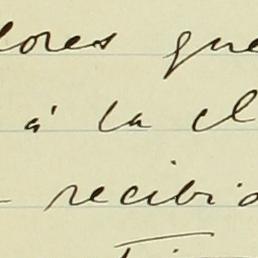 lores que
á la cl
recibid